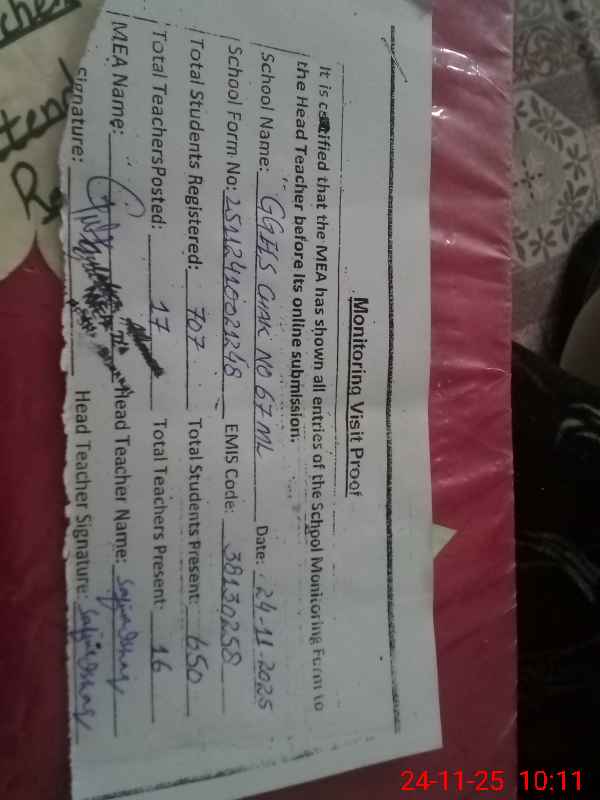 Monitoring Visit Proof
It is certified that the MEA has shown all entries of the School Monitoring Form to
the Head Teacher before its online submission.
School Name: GGHS CHAK NO 67 ML Date: 24-11-2025
School Form No: 25112410021248 EMIS Code: 38130258
Total Students Registered: 707 Total Students Present: 650
Total TeachersPosted: 17 Total Teachers Present: 16
MEA Name: Head Teacher Name:
Signature: Head Teacher Signature:
24-11-25 10:11